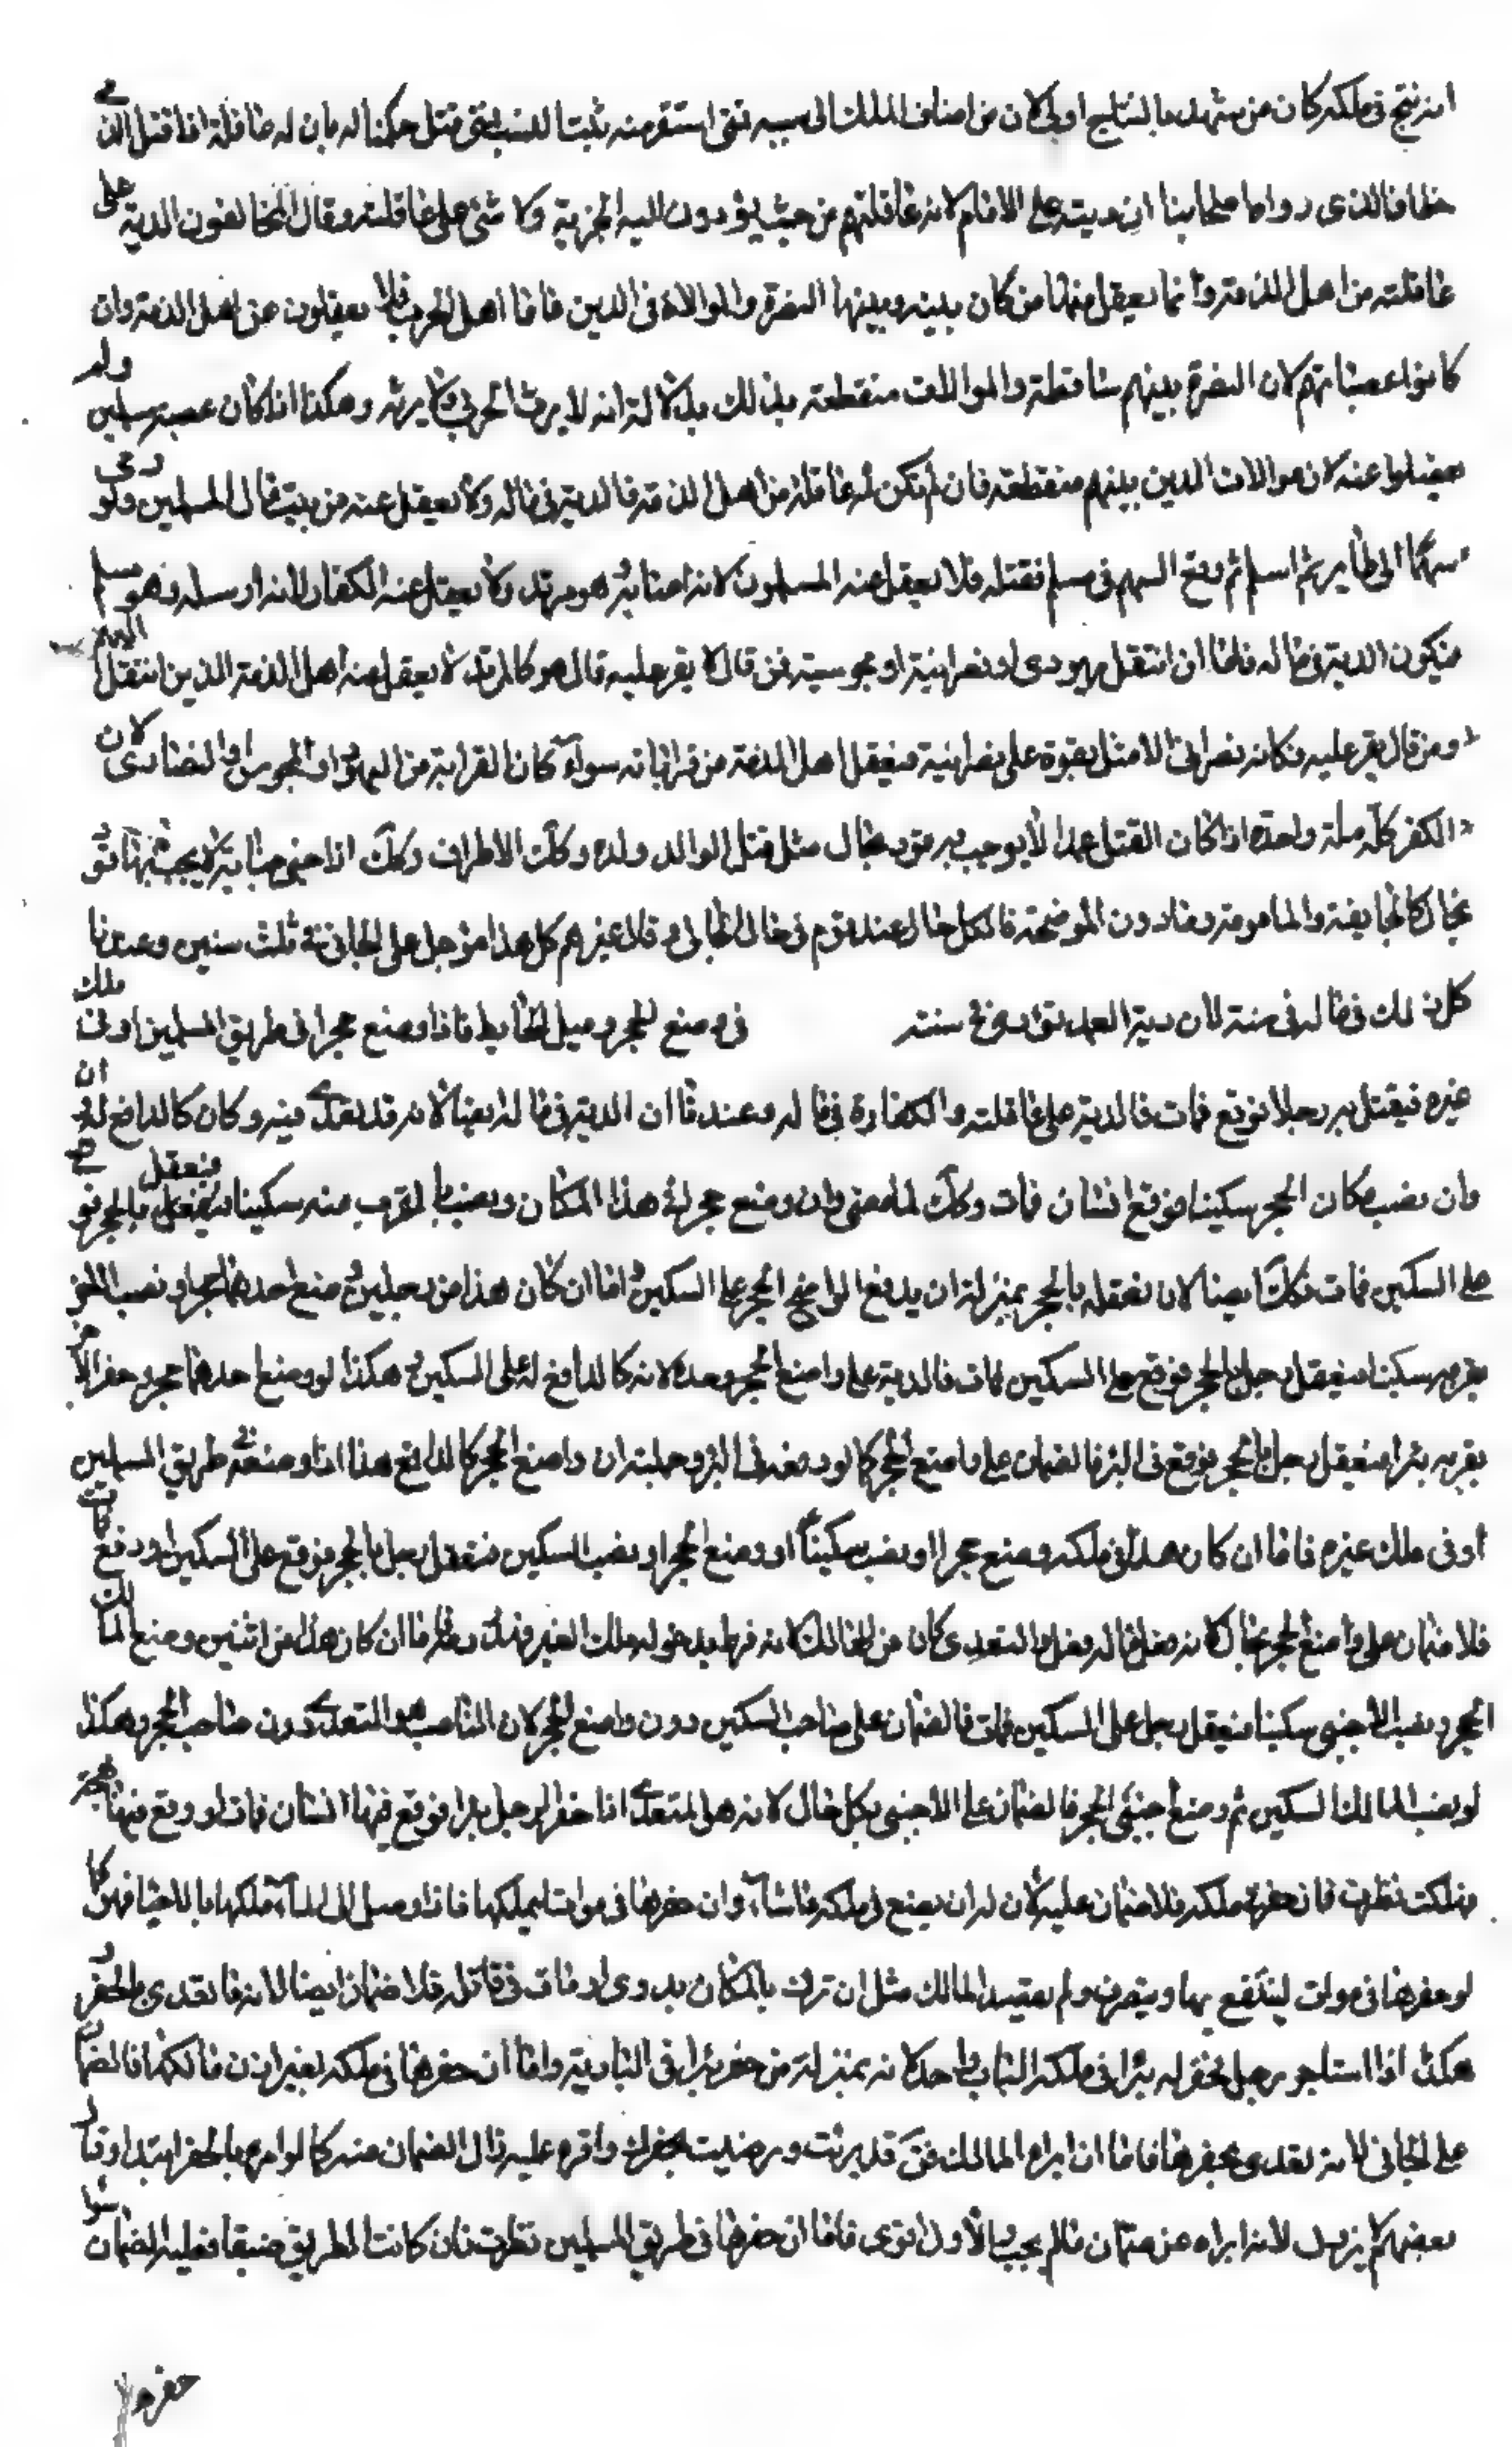 انه نتج في ملكه كان من شهد بالنتاج اولى لان من اضاف الملك الى سببه فمتى استقر منه ثبتا لنسب فمتى قتل حكمنا له بان له عاقلة اذا قتل الذمي
خطا فالذي رواه اصحابنا ان ديته على الامام لانه عاقلتهم من حيث يؤدون اليه الجزية ولا شيء على عاقلته وقال المخالفون الدية على
عاقلته من اهل الذمة وانما يعقل منها من كان بينه وبينها النصرة والموالاة في الدين فاما اهل الحرب فلا يعقلون عن اهل الذمة وان
كانوا عصباتهم لان النصرة بينهم ساقطة والموالات منقطعة بذلك بدلالة انه لا يرث الحربي ولا يرثه وهكذا اذا كان عصبته مسلمين ولم
يعقلوا عنه لان موالات الدين بينهم منقطعة فان لم تكن له عاقلة من اهل الذمة فالدية في ماله ولا يعقل عنه من بيت مال المسلمين ولو رمى
سهما الى طاير ثم اسلم ثم وقع السهم في مسلم فقتله فلا يعقل عنه المسلمون لانه ولا يعقل عنه الكفار لانه ارسله وهو مسلم
فيكون الدية في ماله فاما ان انتقل يهودي او نصرانية او مجوسية فمن قال لا يقر عليه قال هو كالمرتد لا يعقل عنه اهل الذمة الذين انتقل اليهم
ومن قال يقر عليه فكانه نصراني الاصل يعقل اهل الذمة من قراباته سواء كان القرابة من اليهود او المجوس او النصارى لان
الكفر كله ملة واحدة اذا كان القتل عمدا لا يوجب به قود بحال مثل قتل الوالد ولده وكذلك الاطراف وكذلك اذا جنى جناية لا يجب بها قود
بحال كالجايفة والمامومة وما دون الموضحة فالكل حال عند قوم في مال الجاني وقال غيرهم كل هذا مؤجل على الجاني في ثلث سنين وعندنا
كل ذلك في ماله في سنة لان دية العمد تؤدى في سنة في وضع الحجر وميل الحايط فاذا وضع حجرا في طريق المسلمين او في ملك
غيره فيعقل به رجلا فوقع فمات فالدية على عاقلته والكفارة في ماله وعندنا ان الدية في ماله ايضا لانه قد تعدى فيه وكان كالدافع له
وان نصب مكان الحجر سكينا فوقع انسان فمات وكذلك لما مضى وان وضع حجرا في هذا المكان ونصب بالقرب منه سكينا فيعقل بالحجر فوقع
على السكين فمات فكذلك ايضا لان تعقله بالحجر بمنزلة ان يدفع الواضع الحجر على السكين فاما ان كان هذا من رجلين وضع احدهما حجرا ونصب الاخر
بقربه سكينا فيعقل رجل بالحجر فوقع على السكين فمات فالدية على واضع الحجر وحده لانه كالدافع له على السكين وهكذا لو وضع احدهما حجرا وحفر الاخر
بقربه بئرا فيعقل رجل بالحجر فوقع في البئر فالضمان على واضع الحجر كما لو دفعه في البئر وجملته ان واضع الحجر كالدافع هذا اذا وضعه في طريق المسلمين
او في ملك غيره فاما ان كان هذا في ملكه وضع حجرا او نصب سكينا او وضع الحجر او نصب السكين فيعقل رجل بالحجر فوقع على السكين او وقع فمات
فلا ضمان على واضع الحجر بحال لانه فعل ما له فعله والتعدي كان من الهالك لانه فرط بدخوله ملك الغير فاما ان كان هذا من اثنين وضع المالك
الحجر ونصب الاجنبي سكينا فيعقل رجل على السكين فمات فالضمان على صاحب السكين دون واضع الحجر لان الناصب هو المتعدي دون صاحب الحجر وهكذا
لو نصب المالك السكين ثم وضع اجنبي الحجر فالضمان على الاجنبي بكل حال لانه هو المتعدي اذا حفر رجل بئرا فوقع فيها انسان فمات او وقع فيها بهيمة
فهلكت نظرت فان حفرها في ملكه فلا ضمان عليه لان له ان يصنع في ملكه ما شاء وان حفرها في موات ليملكها فاذا وصل الى الماء ملكها بالاحيا فهو كما
لو حفرها في موات لينتفع بها ويتصرف ولم يقصد المالك مثل ان ترك بالمكان بدوي او مات في قافلة فلا ضمان ايضا لانه ما تعدى بالحفر
هكذا اذا استاجر رجل ليحفر له بئرا في ملكه الباب واحد لانه بمنزلة من حفر بئرا في البادية واما ان حفرها في ملكه بغير اذن مالكها فالضمان
على الجاني لانه تعدى بحفرها فاما ان ابراه المالك فقال قد برئت ورضيت بحفرك واقره عليه زال الضمان عنه كما لو امره بالحفر ابتدا وقال
بعضهم لا يزول لانه ابراه عن ضمان ما لم يجب والاول اقوى فاما ان حفرها في طريق المسلمين نظرت فان كانت الطريق ضيقا فعليه الضمان سواء
حفرها